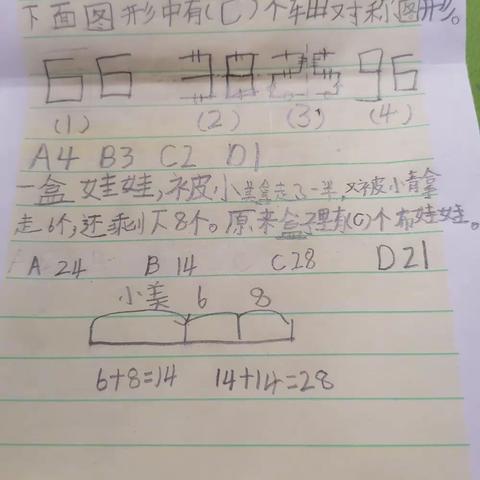 下面图形中有(C)个轴对称图形。
66 38 96
(1) (2) (3) (4)
A4 B3 C2 D1
一盒娃娃,被小美拿走了一半,又被小青拿
走6个,还剩下8个。原来盒子里有(C)个布娃娃。
A 24 B 14 C 28 D 21
小美 6 8
6+8=14 14+14=28